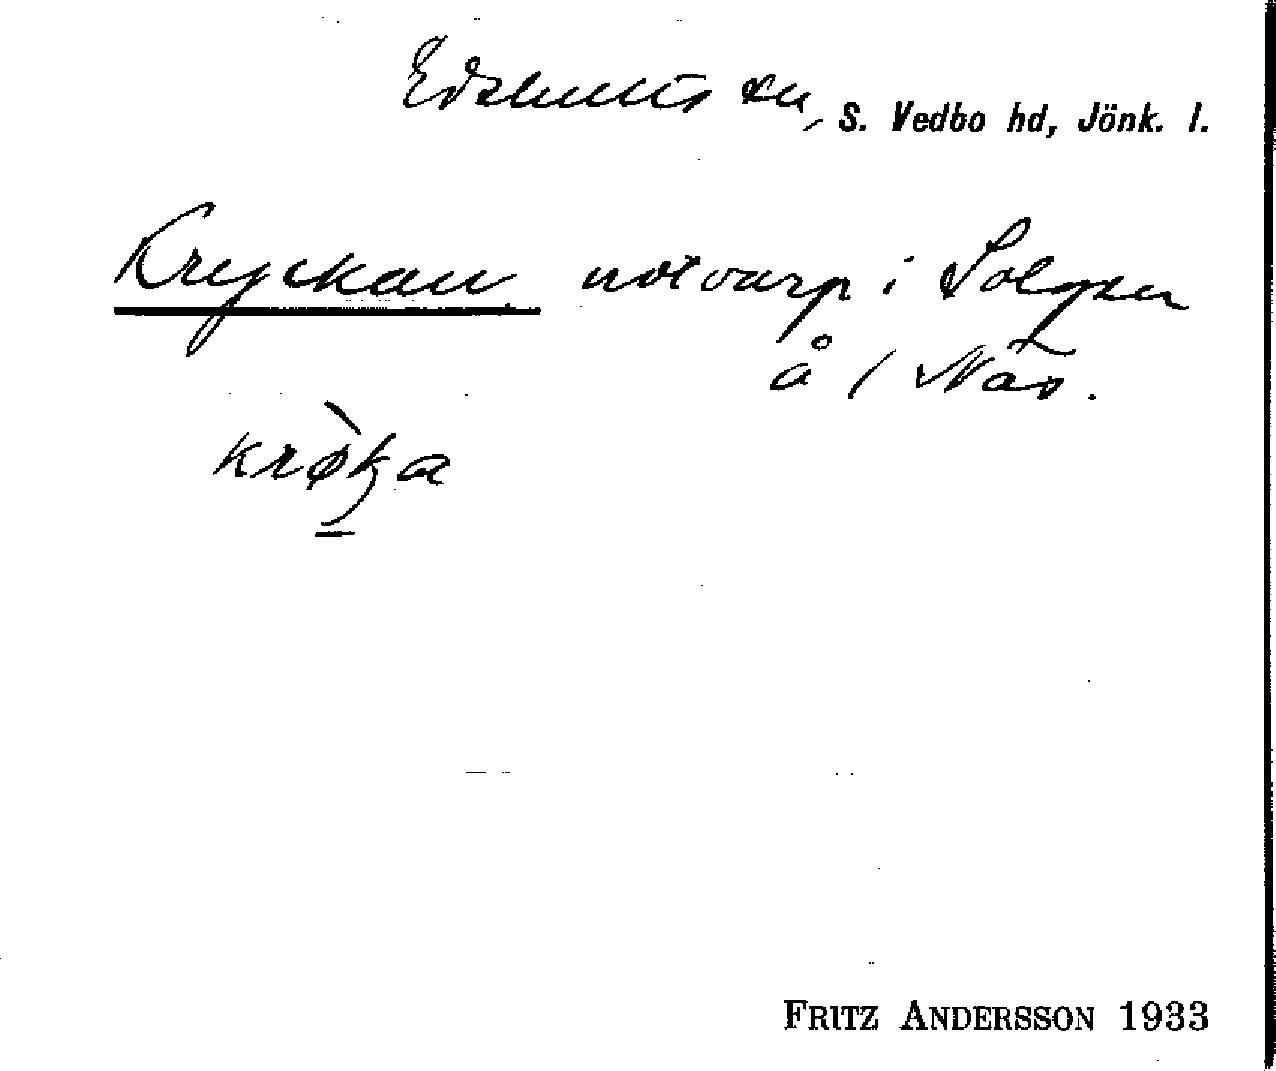 Edshults sn, S. Vedbo hd, Jönk. l.
Kryckan notvarp i Solgen
å / Näs.
krø̀ka
FRITZ ANDERSSON 1933